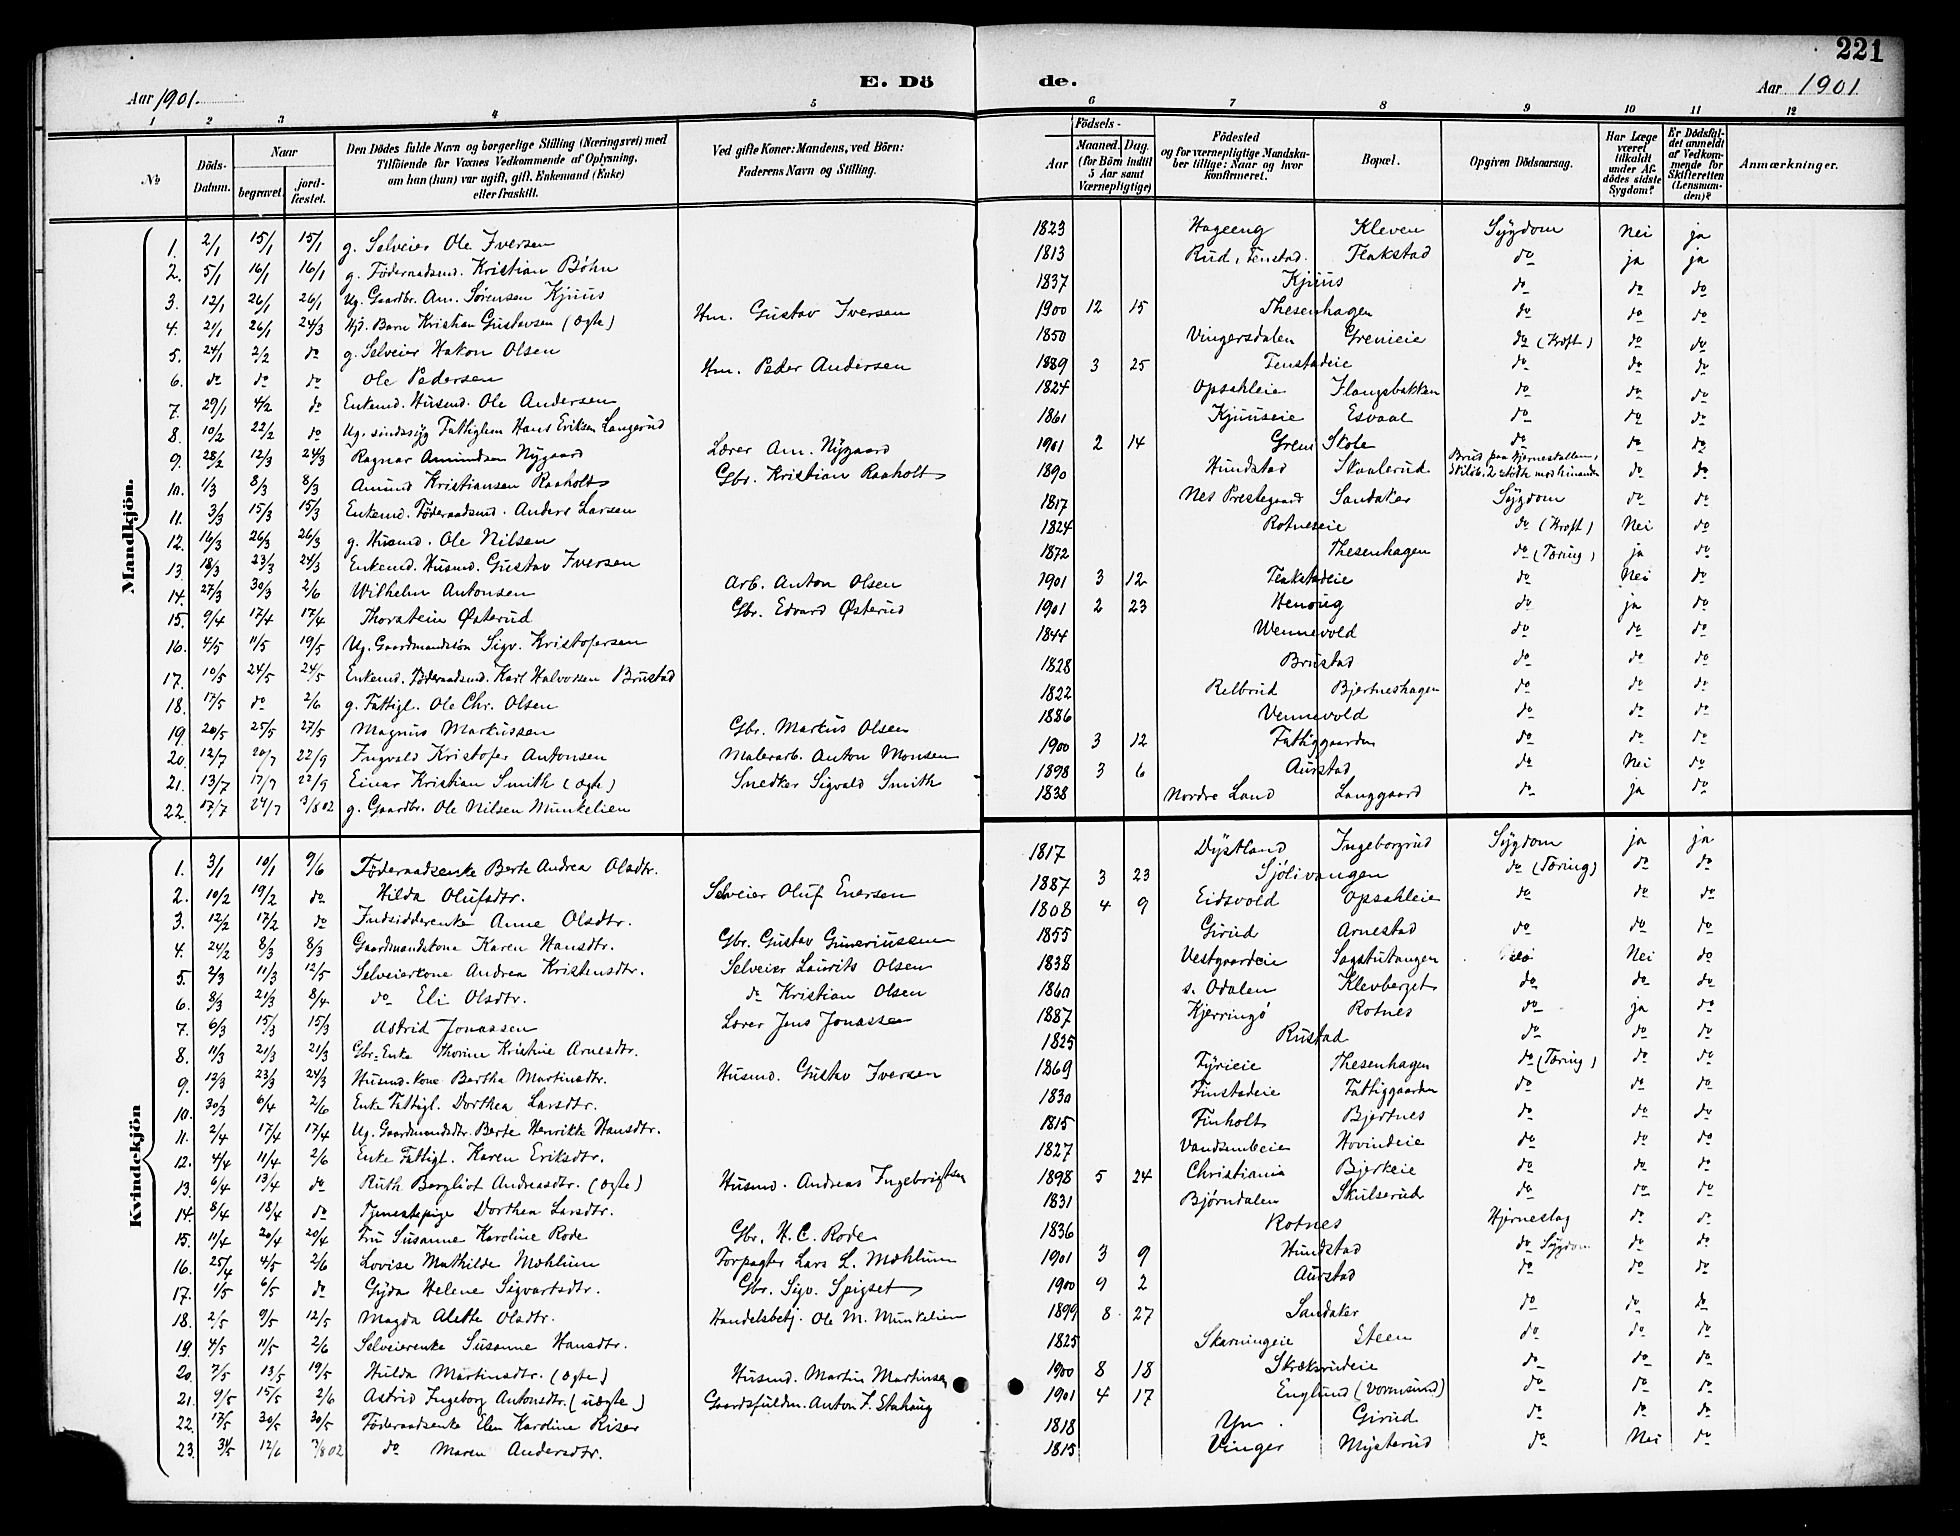 221
Aar 1901.
E. Dö
de.
Aar 1901
1 2 3 4 5 6 7 8 9 10 11 12
№
Döds-Datum.
Naar
begravet.
jord-fæstet.
Den Dödes fulde Navn og borgerlige Stilling (Næringsvei) med Tilföiende for Voxnes Vedkommende af Oplysning, om han (hun) var ugift, gift, Enkemand (Enke) eller fraskilt.
Ved gifte Koner: Mandens, ved Börn: Faderens Navn og Stilling.
Födsels-
Aar
Maaned. Dag. (for Börn indtil 5 Aar samt Værnepligtige)
Födested og for værnepligtige Mandskaber tillige: Naar og hvor konfirmeret.
Bopæl.
Opgiven Dödsaarsag.
Har Læge været tilkaldt under Afdödes sidste Sygdom?
Er Dödsfaldet anmeldt af Vedkommende for Skifteretten (Lensmanden)?
Anmærkninger.
Mandkjön.
1. 2/1 15/1 15/1 g. Selveier Ole Iversen 1823 Hageeng Kleven Sygdom Nei ja
2. 5/1 16/1 16/1 g. Föderaadsmd. Kristian Böhn 1813 Rud, Tenstad Fenkstad do ja ja
3. 12/1 26/1 26/1 Ug. Gaardbr. Am. Sørensen Kjuus 1837 Kjuus do do do
4. 21/1 26/1 24/3 Hjd. Barn Kristian Gustavsen (Ogte) Hm. Gustav Iversen 1900 12 15 Thesenhagen do do do
5. 24/1 2/2 do g. Selveier Hakon Olsen 1850 Vingersdalen Grenieie do (Kroft) do do
6. do do do Ole Pedersen Hm. Peder Andersen 1889 3 25 Tenstadeie do do do
7. 29/1 4/2 do Enkemd. Husmd. Ole Andersen 1824 Opsahleie Haugsbakken do do do
8. 10/2 22/2 do Ug. sindssyg Fattiglem Hans Eriksen Langerud 1861 Kjuuseie Esvaal do do do
9. 28/2 12/3 24/3 Ragnar Amundsen Nygaard Lærer Am. Nygaard 1901 2 14 Greni Skole do do do
10. 1/3 8/3 8/3 Amund Kristiansen Raaholt Gbr. Kristian Raaholt 1890 Hundstad Skaalerud Brud paa Hjerneskallen, Skilöb. 2 stödte mod hinanden do do
11. 3/3 15/3 15/3 Enkemd. Föderaadsmd. Anders Larsen 1817 Nes Prestegaard Sandaker Sygdom do do
12. 16/3 26/3 26/3 g. Husmd. Ole Nilsen 1824 Rotneseie do (Kroft) Nei do
13. 18/3 23/3 24/3 Enkemd. Husmd. Gustav Iversen 1872 Thesenhagen do (Tæring) ja do
14. 27/3 30/3 2/6 Wilhelm Antonsen Arb. Anton Olsen 1901 3 12 Fenkstadeie do Nei do
15. 9/4 17/4 17/4 Thorstein Østerud Gbr. Edvard Østerud 1901 2 23 Henoug do ja do
16. 4/5 11/5 19/5 Ug. Gaardmandssön Sigv. Kristofersen 1844 Wennevold do do do
17. 10/5 24/5 24/5 Enkemd. Föderaadsmd. Karl Halvorsen Brustad 1828 Brustad do do do
18. 17/5 do 2/6 g. Fattigl. Ole Chr. Olsen 1822 Relbrud Bjertneshagen do do do
19. 20/5 25/5 27/5 Magnus Markussen Gbr. Markus Olsen 1886 Vennevold do do do
20. 12/7 20/7 22/9 Ingvald Kristofer Antonsen Malerarb. Anton Monsen 1900 3 12 Fattiggaarden do do do
21. 13/7 17/7 22/9 Einar Kristian Smith (Ogte) Snedker Sigvald Smith 1898 3 6 Aurstad do Nei do
22. 17/7 24/7 3/8 02 g. Gaardbr. Ole Nilsen Munkelien 1838 Nordre Land Langgaard do ja do
Kvindekjön
1. 3/1 10/1 9/6 Föderaadsenke Berte Andrea Olsdtr. 1817 Dystland Ingeborgrud Sygdom ja ja
2. 10/2 19/2 do Hilda Olufsdtr. Selveier Oluf Enersen 1887 3 23 Sjölivangen do (Tæring) do do
3. 12/2 17/2 do Indsidderenke Anne Olsdtr. 1808 4 9 Eidsvold Opsahleie do do do
4. 24/2 8/3 8/3 Gaardmandskone Karen Hansdtr. Gbr. Gustav Guneriussen 1855 Girud Arnestad do do do
5. 2/3 11/3 12/5 Selveierkone Andrea Kristensdtr. Selveier Laurits Olsen 1838 Vestgaardeie Sagstutangen Nei do
6. 8/3 21/3 8/4 do Eli Olsdtr. do Kristian Olsen 1860 s. Odalen Klevberget do do do
7. 6/3 15/3 15/3 Astrid Jonassen Lærer Jens Jonassen 1887 Kjerringö Rotnes do ja do
8. 11/3 21/3 21/3 Gbr. Enke Thorine Kristine Arnesdtr. 1825 Rustad do do do
9. 12/3 23/3 24/3 Husmd. kone Bertha Martinsdtr. Husmd. Gustav Iversen 1869 Fyrieie Thesenhagen do (Tæring) do do
10. 30/3 6/4 2/6 Enke Fattigl. Dorthea Larsdtr. 1830 Finstadeie Fattiggaarden do do do
11. 2/4 17/4 17/4 Ug. Gaardmandsdtr. Berte Henrikke Hansdtr. 1815 Finholt Bjertnes do do do
12. 4/4 11/4 2/6 Enke Fattigl. Karen Eriksdtr. 1827 Vandsumbeie Hovindeie do do do
13. 6/4 13/4 do Ruth Bergliot Andreasdtr. (Ogte) Husmd. Andreas Ingebrigtsen 1898 5 24 Christiania Bjerkeie do do do
14. 8/4 18/4 do Tjenestepige Dorthea Larsdtr. 1831 Bjørndalen Skulserud do do do
15. 11/4 20/4 20/4 Fru Susanne Karoline Rode Gbr. H. C. Rode 1836 Rotnes Hjerneslag do do
16. 25/4 4/5 2/6 Lovise Mathilde Mæhlum Forpagter Lars L. Mæhlum 1901 3 9 Hundstad do Sygdom do do
17. 1/5 6/5 do Gyda Helene Sigvartsdtr. Gbr. Sigv. Spigset 1900 9 2 Aurstad do do do
18. 2/5 9/5 12/5 Magda Alette Olsdtr. Handelsbetj. Ole M. Munkelien 1899 8 27 Sandaker do do do
19. 4/5 11/5 2/6 Selveierenke Susanne Hansdtr. 1825 Skarningeie Steen do do do
20. 7/5 13/5 19/5 Hulda Martinsdtr. (Ogte) Husmd. Martin Martinsen 1900 8 18 Skoksrudeie do do do
21. 9/5 15/5 2/6 Astrid Ingeborg Antonsdtr. (uægte) Gaardsfuldm. Anton F. Stahaug 1901 4 17 Englund (Vormsund) do do do
22. 17/5 30/5 30/5 Föderaadsenke Elen Karoline Riser 1818 Ym. Girud do do do
23. 31/5 12/6 3/8 02 do Maren Andersdtr. 1815 Vinger Mysterud do Nei do